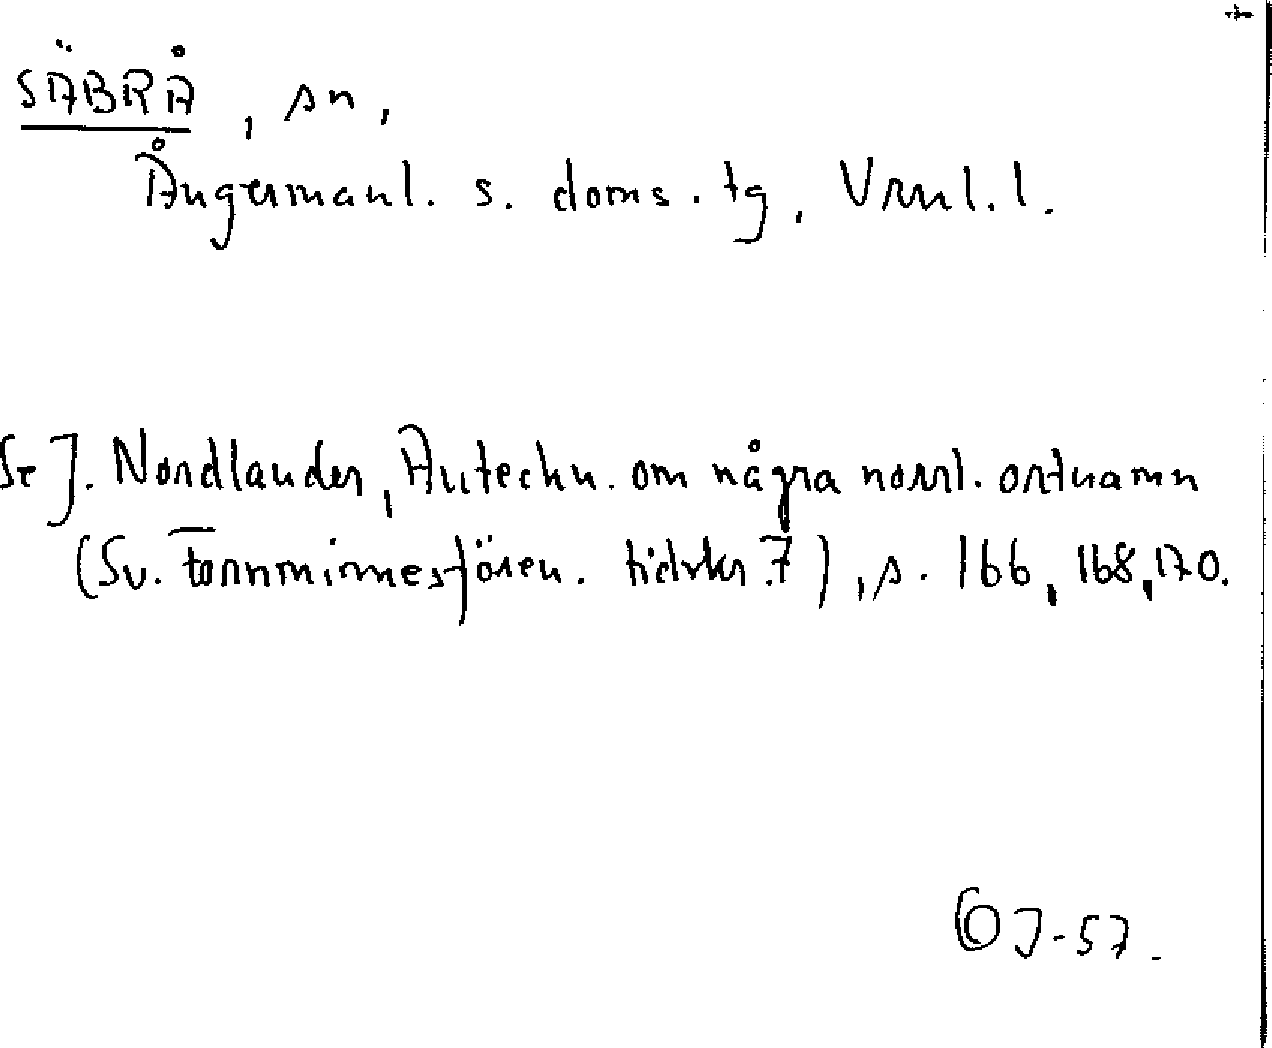 SÄBRÅ, sn,
Ångermanl. s. doms. tg, Vrnl. l.
Se J. Nordlander, Anteckn. om några norrl. ortnamn
(Sv. Fornminnesfören. tidskr. 7), s. 166, 168, 170.
J-57.